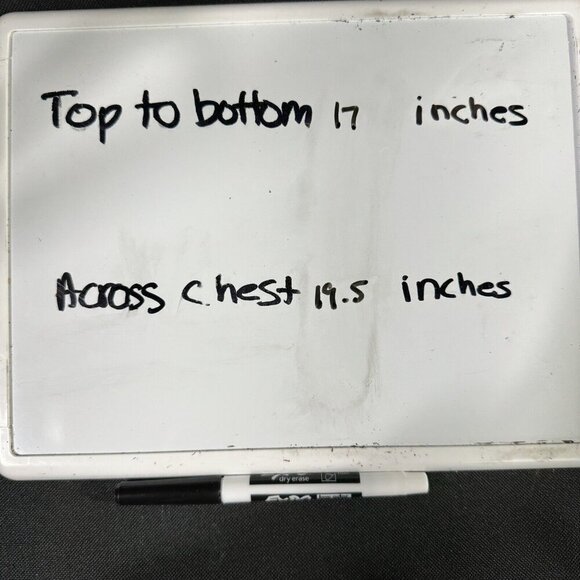 Top to bottom 17 inches
Across chest 19.5 inches
dry erase
EXPO